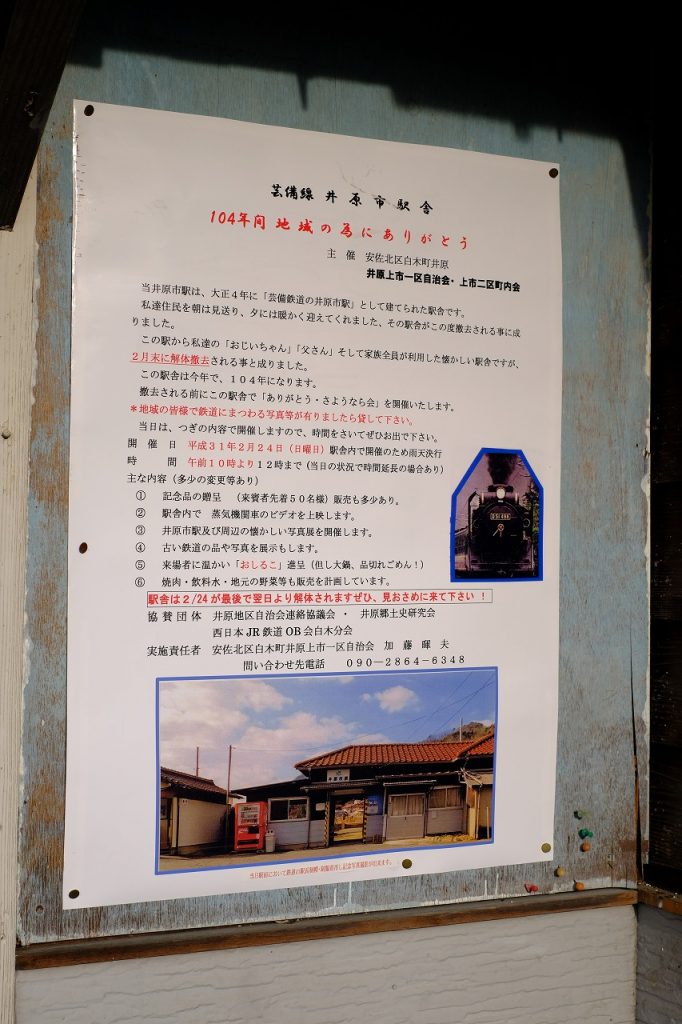 芸備線 井原市駅舎
104年間地域の為にありがとう
主 催 安佐北区白木町井原
井原上市一区自治会・上市二区町内会
当井原市駅は、大正4年に「芸備鉄道の井原市駅」として建てられた駅舎です。
私達住民を朝は見送り、夕には暖かく迎えてくれました、その駅舎がこの度撤去される事に成
りました。
この駅から私達の「おじいちゃん」「父さん」そして家族全員が利用した懐かしい駅舎ですが、
2月末に解体撤去される事と成りました。
この駅舎は今年で、104年になります。
撤去される前にこの駅舎で「ありがとう・さようなら会」を開催いたします。
*地域の皆様で鉄道にまつわる写真等が有りましたら貸して下さい。
当日は、つぎの内容で開催しますので、時間をさいてぜひお出で下さい。
開 催 日 平成31年2月24日(日曜日)駅舎内で開催のため雨天決行
時 間 午前10時より12時まで(当日の状況で時間延長の場合あり)
主な内容(多少の変更等あり)
① 記念品の贈呈 (来賓者先着50名様)販売も多少あり。
② 駅舎内で 蒸気機関車のビデオを上映します。
③ 井原市駅及び周辺の懐かしい写真展を開催します。
④ 古い鉄道の品や写真を展示もします。
⑤ 来場者に温かい「おしるこ」進呈(但し大鍋、品切れごめん!)
⑥ 焼肉・飲料水・地元の野菜等も販売を計画しています。
D51 498
駅舎は2/24が最後で翌日より解体されますぜひ、見おさめに来て下さい !
協 賛 団 体 井原地区自治会連絡協議会 ・ 井原郷土史研究会
西日本JR鉄道OB会白木分会
実施責任者 安佐北区白木町井原上市一区自治会 加 藤 暉 夫
問い合わせ先電話 090-2864-6348
井原市駅